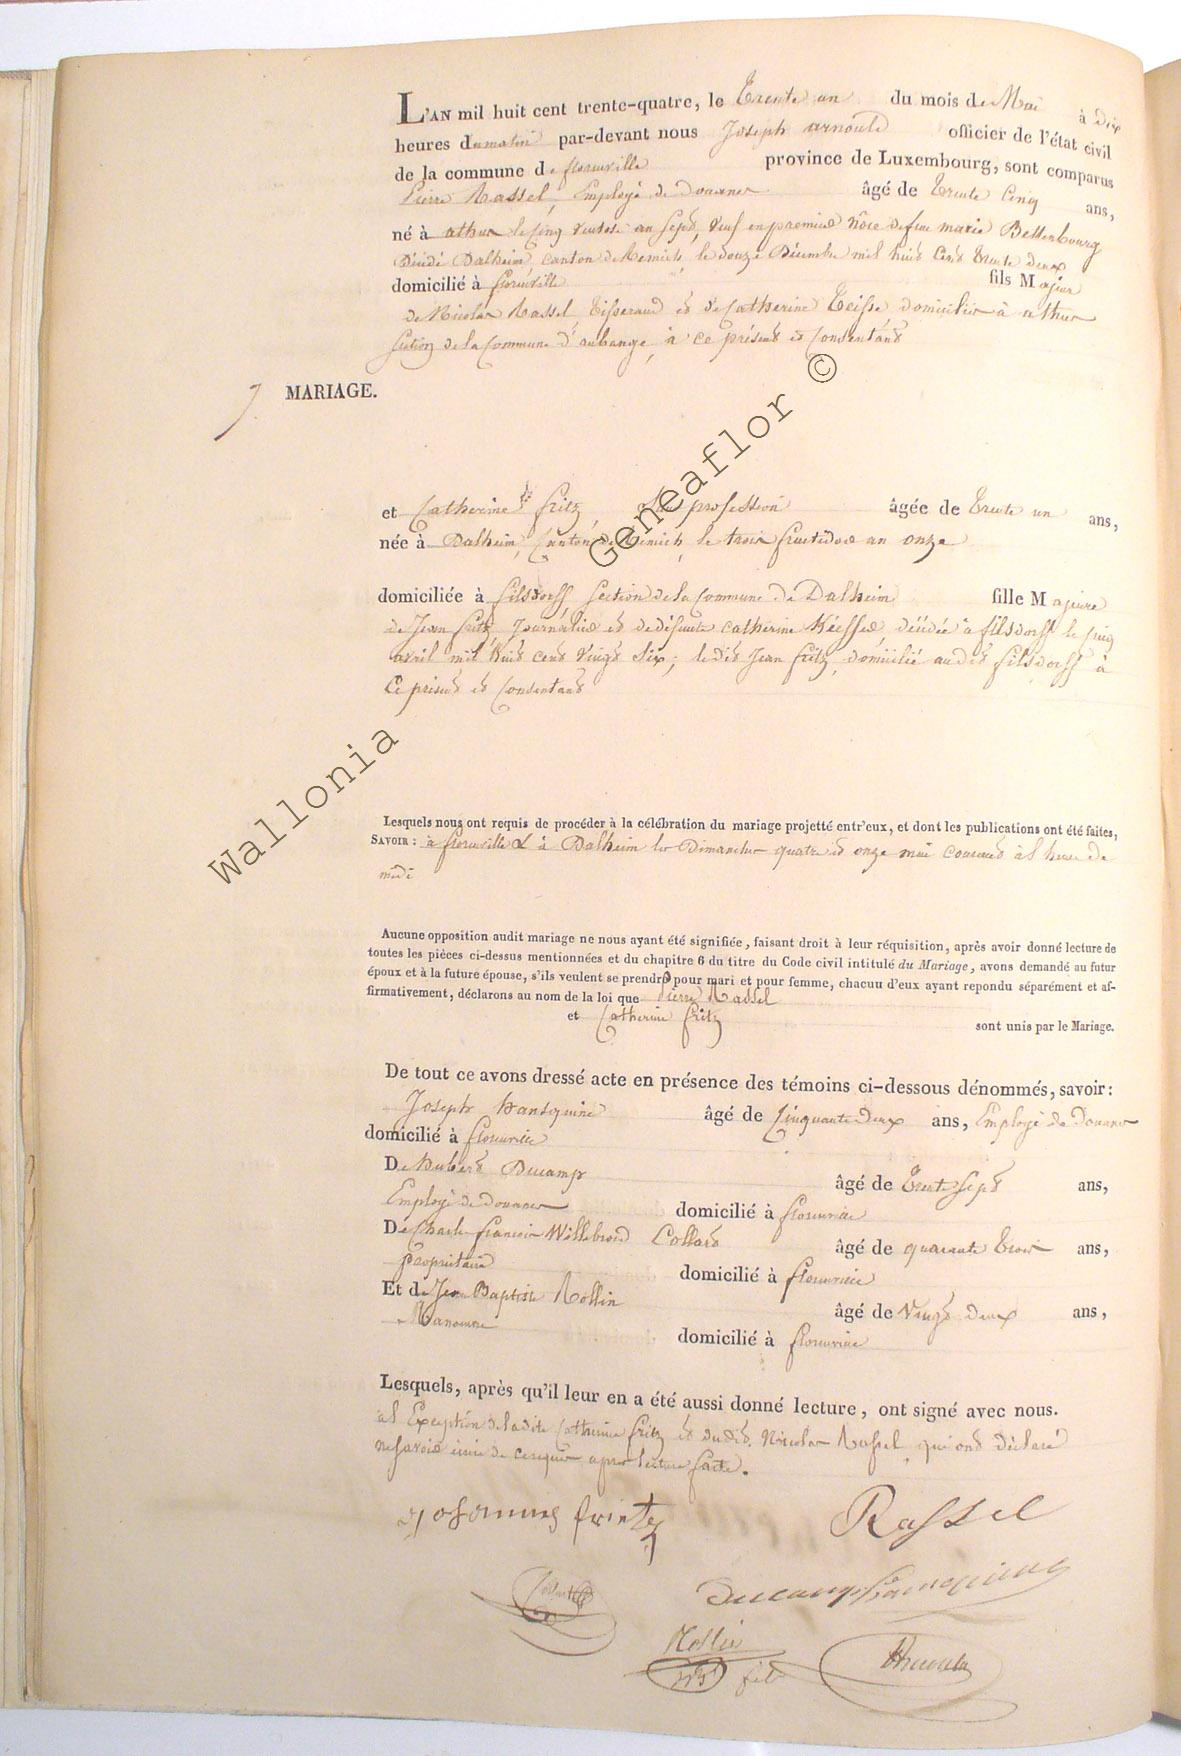 L'AN mil huit cent trente-quatre, le Trente un du mois de Mai à dix
heures du matin par-devant nous Joseph arnould officier de l'état civil
de la commune de florenville province de Luxembourg, sont comparus
Pierre Rassel, Employé de Douanes âgé de Trente Cinq ans,
né à athus le cinq ventose an sept, veuf en premiere nôce de feue marie Bettenbourg
Décédé Dalheim, canton de Remich, le douze Décembre mil huit cent trente deux
domicilié à florenville fils Majeur
de Nicolas Rassel, Tisserand et de Catherine Teisse domiciliés à athus
Section de la Commune d'aubange, à ce présent et Consentant
7. MARIAGE.
et Catherine fritz profession âgée de Trente un ans,
née à Dalheim, Canton de Remich, le trois fructidor an onze
domiciliée à filsdorff Section de la Commune de Dalheim fille Majeure
de Jean fritz, Journalier et de défunte Catherine décédée à filsdorff le
avril mil huit cent vingt Six; le dit Jean fritz, domicilié au dit filsdorff à
Ce présent et Consentant
Lesquels nous ont requis de procéder à la célébration du mariage projetté entr'eux, et dont les publications ont été faites,
SAVOIR : à florenville & à Dalheim les Dimanches quatre et onze mai courant à l'heure de
midi
Aucune opposition audit mariage ne nous ayant été signifiée, faisant droit à leur réquisition, après avoir donné lecture de
toutes les pièces ci-dessus mentionnées et du chapitre 6 du titre du Code civil intitulé du Mariage, avons demandé au futur
époux et à la future épouse, s'ils veulent se prendre pour mari et pour femme, chacuu d'eux ayant repondu séparément et af-
firmativement, déclarons au nom de la loi que Pierre Rassel
et Catherine fritz sont unis par le Mariage.
De tout ce avons dressé acte en présence des témoins ci-dessous dénommés, savoir :
Joseph Hansquine âgé de Cinquante Deux ans, Employé de Douanes
domicilié à florenville
De Hubert Ducamp âgé de Trente Sept ans,
Employé de Douanes domicilié à florenville
De Charles françois Willebrord Collard âgé de quarante Trois ans,
propriétaire domicilié à florenville
Et de Jean Baptiste Rollin âgé de Vingt Deux ans,
Manœuvre domicilié à florenville
Lesquels, après qu'il leur en a été aussi donné lecture, ont signé avec nous.
à l'Exception de la dite Catherine fritz et du dit Nicolas Rassel, qui ont déclaré
ne savoir écrire de ce requis après lecture faite.
Johannes frietz Rassel
Collard Ducamp Hansquine
Rollin
JB fils
Wallonia Geneaflor ©